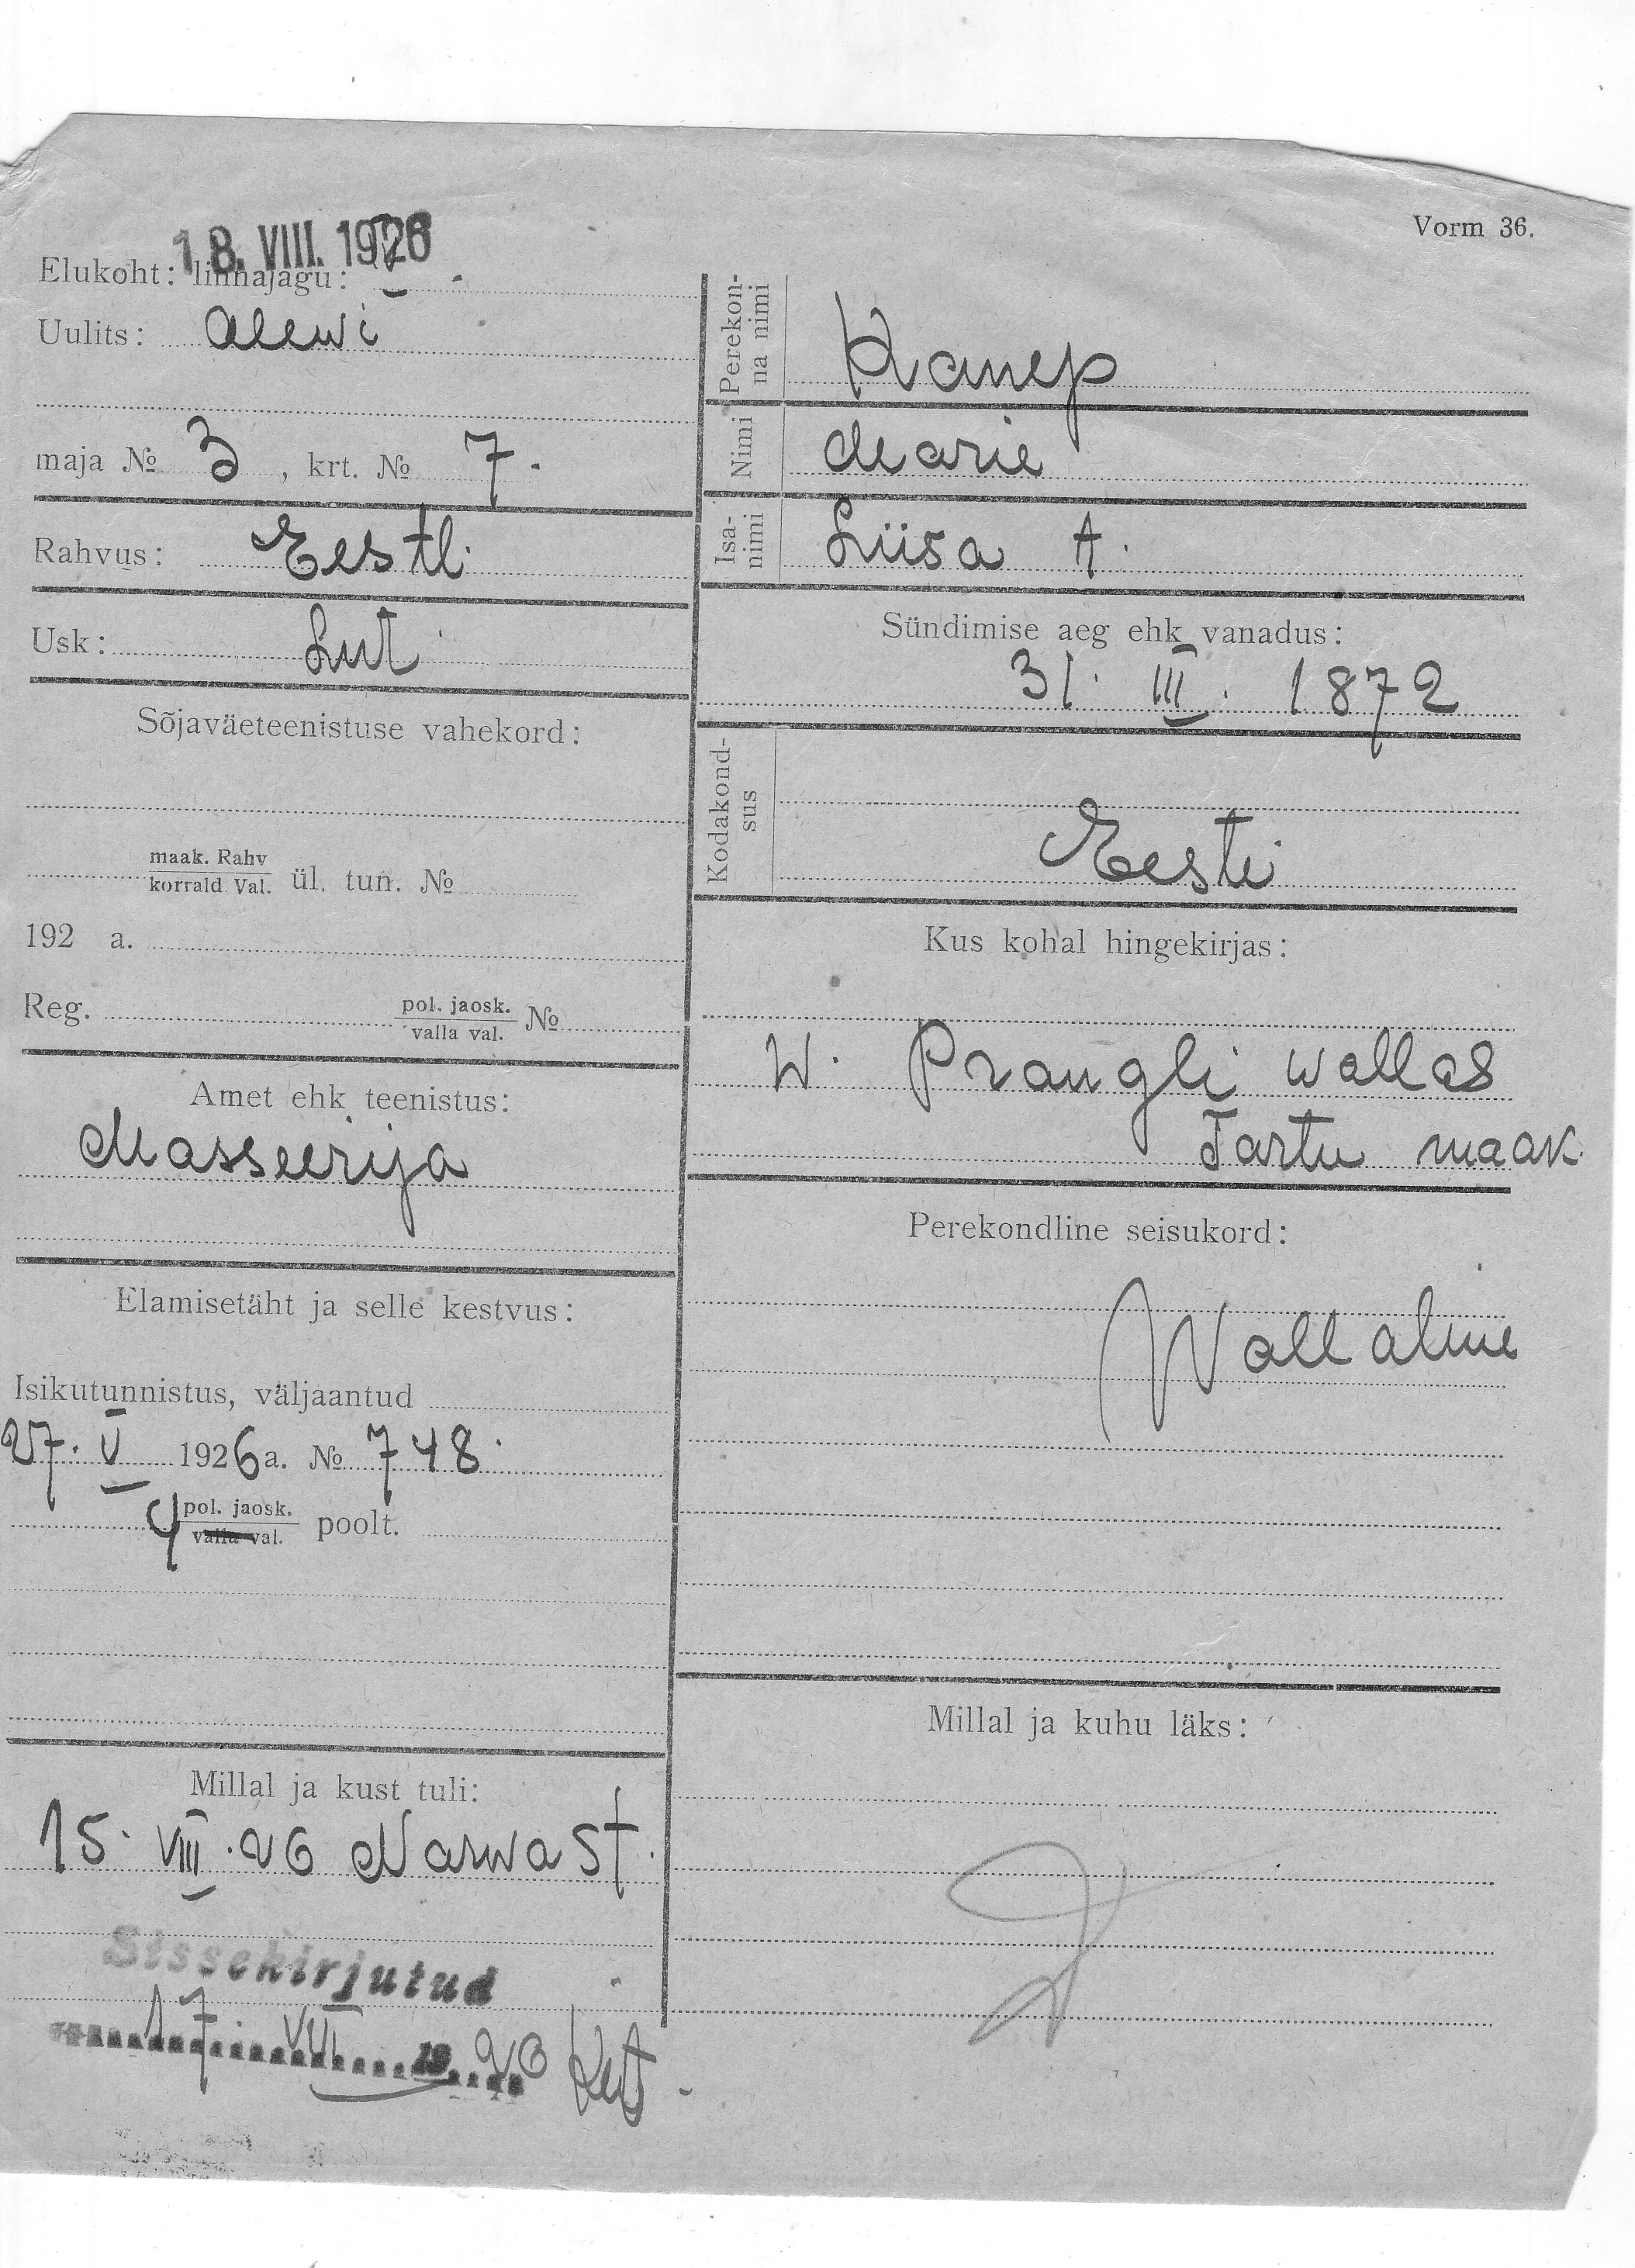 Vorm 36.
18. VIII. 1926
Elukoht: linnajagu:
Uulits: Alewi
maja № 3, krt. № 7.
Rahvus: Eesti
Usk: Lut
Sõjaväeteenistuse vahekord:
maak. Rahv
korrald. Val. ül. tun. №
192 a.
Reg. pol. jaosk. №
valla val.
Amet ehk teenistus:
Masseerija
Elamisetäht ja selle kestvus:
Isikutunnistus, väljaantud
27. V 1926 a. № 748.
4 pol. jaosk. poolt.
valla val.
Millal ja kust tuli:
15. VIII. 26 Narwast.
Sissekirjutud
17. VIII 1926
Perekon-
na nimi
Kanep
Nimi Marie
Isa-
nimi
Liisa t.
Sündimise aeg ehk vanadus:
31. III. 1872
Kodakond-
sus
Eesti
Kus kohal hingekirjas:
W. Prangli wallas
Tartu maak.
Perekondline seisukord:
Wallaline
Millal ja kuhu läks: